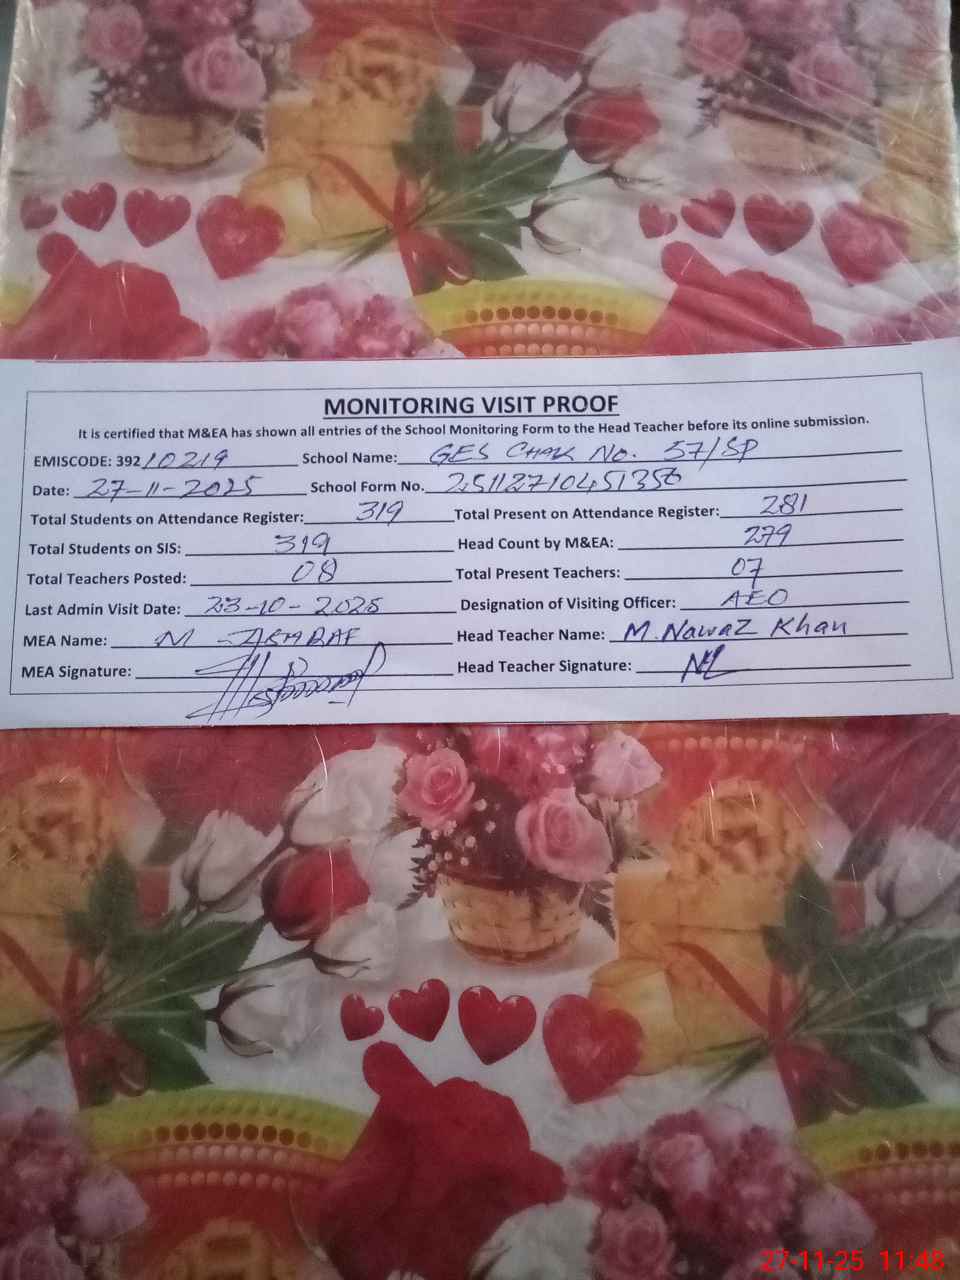 MONITORING VISIT PROOF
It is certified that M&EA has shown all entries of the School Monitoring Form to the Head Teacher before its online submission.
EMISCODE: 39210219 School Name: GES CHAK No. 57/SP
Date: 27-11-2025 School Form No. 25112710451356
Total Students on Attendance Register: 319 Total Present on Attendance Register: 281
Total Students on SIS: 319 Head Count by M&EA: 279
Total Teachers Posted: 08 Total Present Teachers: 07
Last Admin Visit Date: 23-10-2025 Designation of Visiting Officer: AEO
MEA Name: M-ASHRAF Head Teacher Name: M.Nawaz Khan
MEA Signature: Head Teacher Signature:
27-11-25 11:48